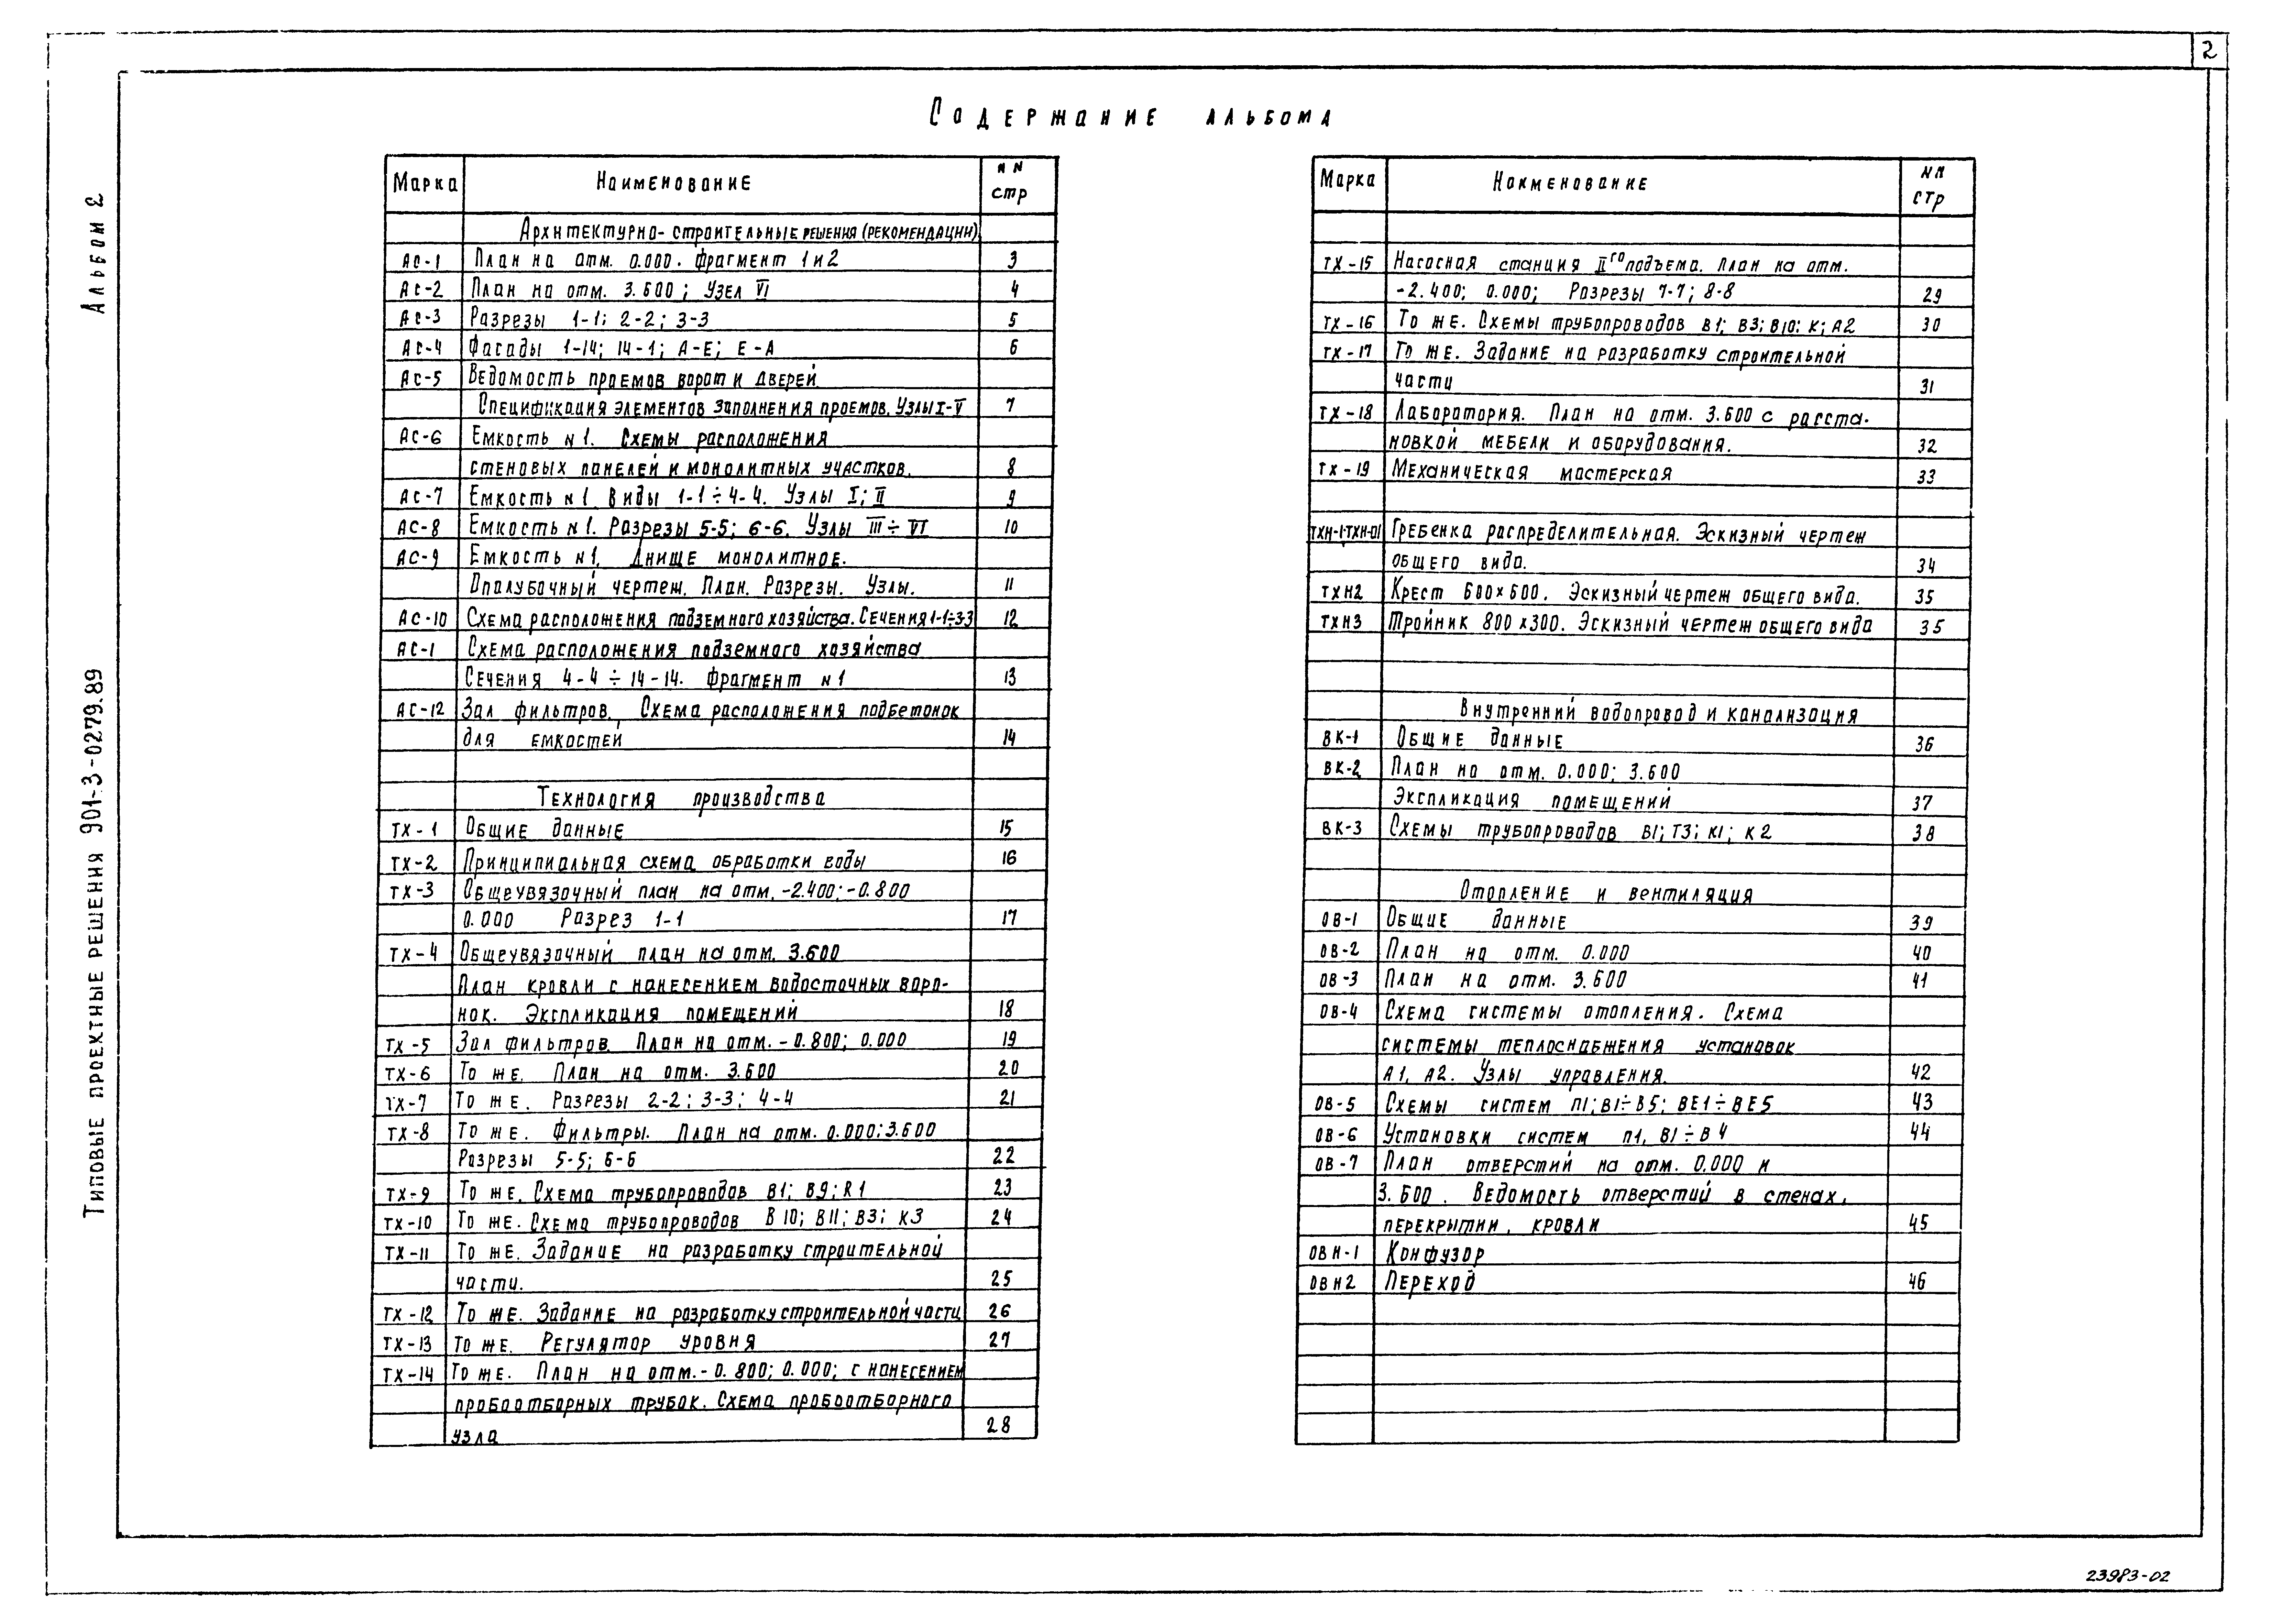 2
Содержание альбома
Альбом 2
Типовые проектные решения 901-3-0279.89
Марка Наименование NN стр
Архитектурно-строительные решения (рекомендации)
АС-1 План на отм. 0.000. Фрагмент 1 и 2 3
АС-2 План на отм. 3.600; Узел VI 4
АС-3 Разрезы 1-1; 2-2; 3-3 5
АС-4 Фасады 1-14; 14-1; А-Е; Е-А 6
АС-5 Ведомость проемов ворот и дверей
Спецификация элементов заполнения проемов. Узлы I-V 7
АС-6 Емкость N1. Схемы расположения
стеновых панелей и монолитных участков. 8
АС-7 Емкость N1. Виды 1-1÷4-4. Узлы I; II 9
АС-8 Емкость N1. Разрезы 5-5; 6-6. Узлы III÷VI 10
АС-9 Емкость N1. Днище монолитное.
Опалубочный чертеж. План. Разрезы. Узлы. 11
АС-10 Схема расположения подземного хозяйства. Сечения 1-1÷3-3 12
АС-1 Схема расположения подземного хозяйства
Сечения 4-4÷14-14. Фрагмент N1 13
АС-12 Зал фильтров. Схема расположения подбетонок
для емкостей 14
Технология производства
ТХ-1 Общие данные 15
ТХ-2 Принципиальная схема обработки воды 16
ТХ-3 Общеувязочный план на отм. -2.400; -0.800
0.000 Разрез 1-1 17
ТХ-4 Общеувязочный план на отм. 3.600
План кровли с нанесением водосточных воро-
нок. Экспликация помещений 18
ТХ-5 Зал фильтров. План на отм. -0.800; 0.000 19
ТХ-6 То же. План на отм. 3.600 20
ТХ-7 То же. Разрезы 2-2; 3-3; 4-4 21
ТХ-8 То же. Фильтры. План на отм. 0.000; 3.600
Разрезы 5-5; 6-6 22
ТХ-9 То же. Схема трубопроводов В1; В9; R1 23
ТХ-10 То же. Схема трубопроводов В10; В11; В3; К3 24
ТХ-11 То же. Задание на разработку строительной
части. 25
ТХ-12 То же. Задание на разработку строительной части 26
ТХ-13 То же. Регулятор уровня 27
ТХ-14 То же. План на отм. -0.800; 0.000; с нанесением
пробоотборных трубок. Схема пробоотборного
узла 28
Марка Наименование NN стр
ТХ-15 Насосная станция II го подъема. План на отм.
-2.400; 0.000; Разрезы 7-7; 8-8 29
ТХ-16 То же. Схемы трубопроводов В1; В3; В10; К; А2 30
ТХ-17 То же. Задание на разработку строительной
части 31
ТХ-18 Лаборатория. План на отм. 3.600 с расста-
новкой мебели и оборудования. 32
ТХ-19 Механическая мастерская 33
ТХН-1÷ТХН-01 Гребенка распределительная. Эскизный чертеж
общего вида. 34
ТХН2 Крест 600×600. Эскизный чертеж общего вида. 35
ТХН3 Тройник 800×300. Эскизный чертеж общего вида 35
Внутренний водопровод и канализация
ВК-1 Общие данные 36
ВК-2 План на отм. 0.000; 3.600
Экспликация помещений 37
ВК-3 Схемы трубопроводов В1; Т3; К1; К2 38
Отопление и вентиляция
ОВ-1 Общие данные 39
ОВ-2 План на отм. 0.000 40
ОВ-3 План на отм. 3.600 41
ОВ-4 Схема системы отопления. Схема
системы теплоснабжения установок
А1, А2. Узлы управления. 42
ОВ-5 Схемы систем П1; В1÷В5; ВЕ1÷ВЕ5 43
ОВ-6 Установки систем П1, В1÷В4 44
ОВ-7 План отверстий на отм. 0.000 и
3.600. Ведомость отверстий в стенах,
перекрытии, кровли 45
ОВН-1 Конфузор
ОВН2 Переход 46
23983-02